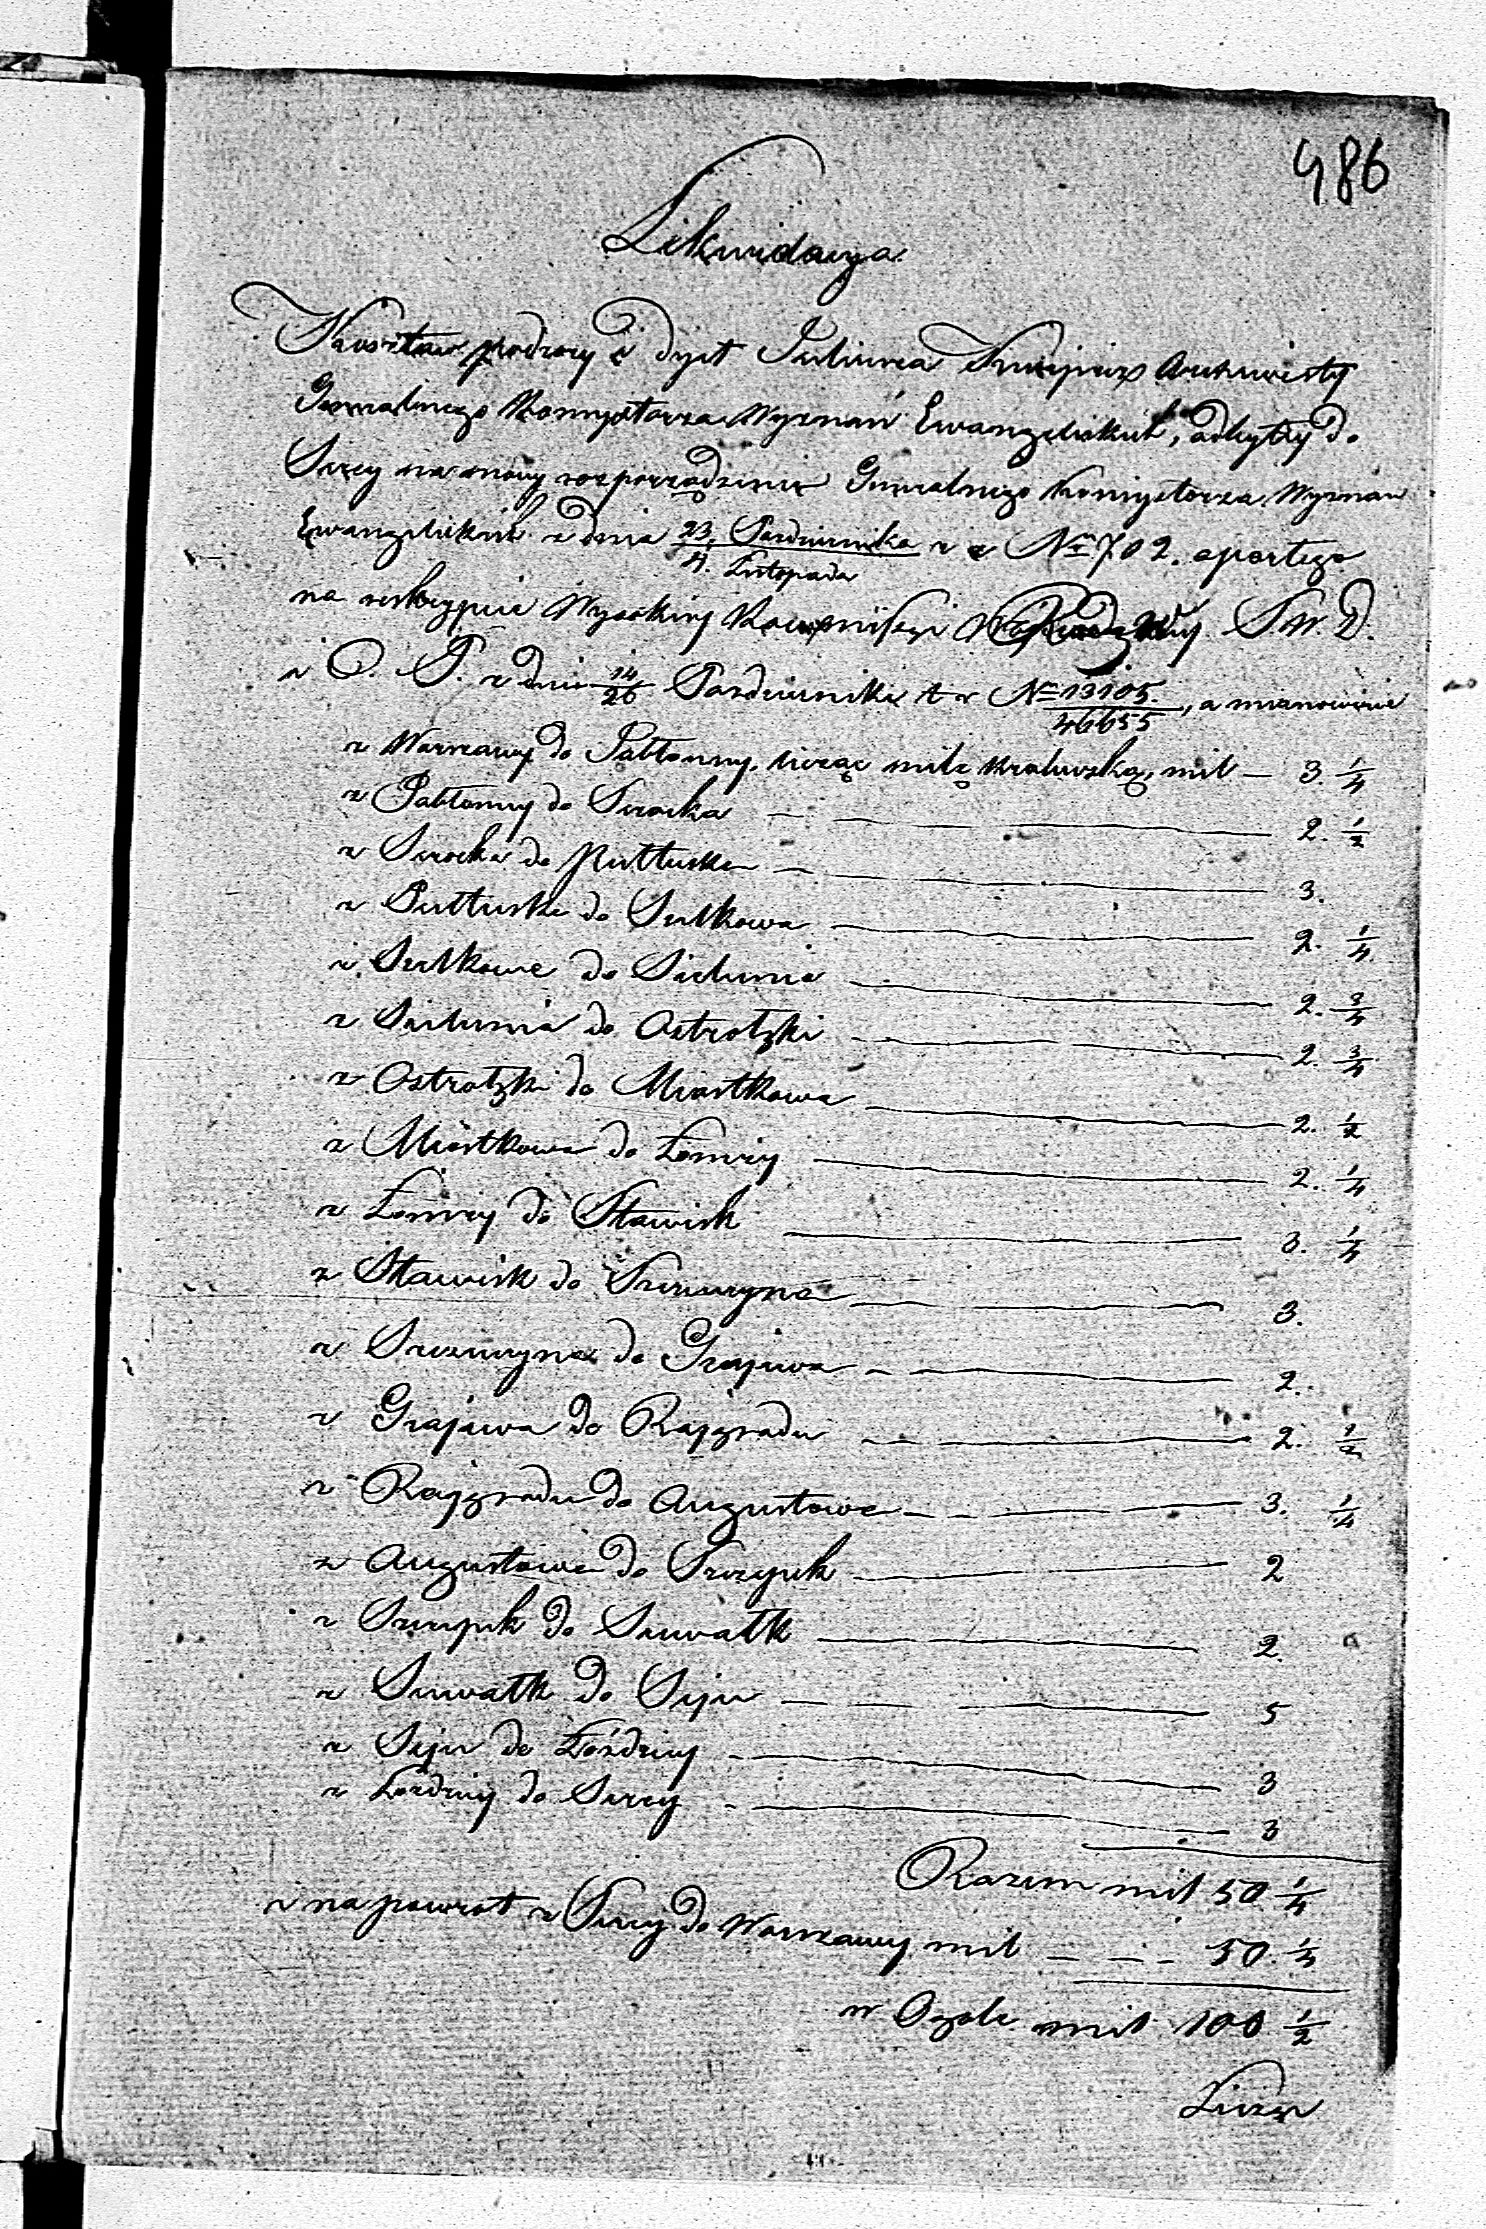 486
Likwidacya
Kosztów podrozy i dyet Juliusza Archiwisty
Generalnego Konsystorza Wyznań Ewangelickich, odbytey do
Serey na mocy rozporządzenia Generalnego Konsystorza Wyznań
Ewangelickich z dnia 23. Pazdziernika / 4. Listopada r z № 702. opartego
na reskrypcie Wysokiey Kommissyi Rządowey S. W. D.
i O. P. z dnia 14/26 Pazdziernika t r № 13105./46655, a mianowicie
z Warszawy do Jabłonny, licząc milę kralewską, mil — 3 1/4
z Jabłonny do Serocka — 2. 1/2
z Serocka do Pułtuska — 3.
z Pułtuska do Sielkowa — 2. 1/4
z Sielkowa do Sielunia — 2. 3/4
z Sielunia do Ostrołęki — 2. 3/4
z Ostrołęki do Miastkowa — 2. 1/2
z Miastkowa do Łomży — 2. 1/4
z Łomży do Stawisk — 3. 1/4
z Stawisk do Szczuczyna — 3.
z Szczuczyna do Grajewa — 2.
z Grajewa do Rajgrodu — 2. 1/2
z Rajgrodu do Augustowa — 3. 1/4
z Augustowa do Szczepek — 2
z Szczepek do Suwałk — 2.
z Suwałk do Sejn — 5
z Sejn do Łoździey — 3
z Łoździey do Serey — 3
Razem mil 50 1/4
i na powrot z Serey do Warszawy mil — 50. 1/4
w Ogole mil 100 1/2
Licząc